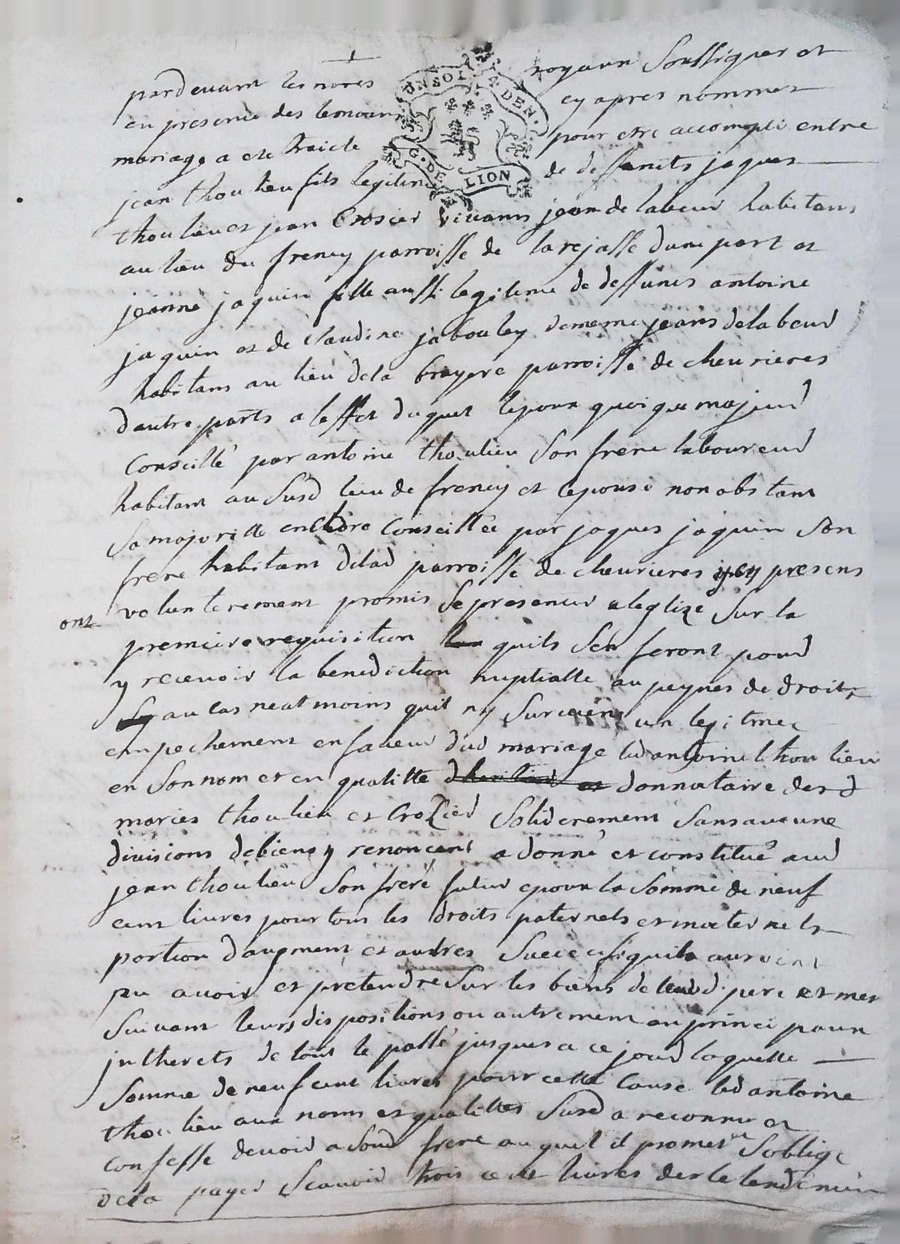 pardevant les no.res royaux Soussignes et
en presence des temoins cy apres nommes
mariage a ete traicte pour etre accompli entre
jean thoulieu fils legitime de deffunts jaques
UN SOL 4 DEN.
G. DE LION
thoulieu et jean Crosier vivants jeans de labeur habitans
au lieu du freney parroisse de larejasse dune part et
jeanne jaquin fille aussi legitime de deffunts antoine
jaquin et de claudine jabouley de meme jeans de labeur
habitans au lieu dela bruyere parroisse de chevrieres
dautre parts a leffet duquel lepoux quoique majeur
Conseillé par antoine thoulieu Son frere laboureur
habitant au Susd lieu de freney et lepouse nonobstant
Sa majoritte encore Conseillée par jaques jaquin Son
frere habitant delad parroisse de chevrieres icy presens
ont volunterement promis Se presenter a leglize Sur la
premiere requisition quils Sen feront pour
y recevoir la benediction nuptialle au peynes de droits
au cas neatmoins quil ny Survienne un legitime
empechement en faveur dud mariage led antoine thoulieu
en Son nom et en qualitte donnataire desd
maries thoulieu et Crozier Soliderement Sans aucune
divisions debiens y renoncent a donné et constitué aud
jean thoulieu Son frere futur epoux la Somme de neuf
cent livres pour tous les droits paternels et maternels
portion daugment et autres quils auroient
pu avoir et pretendre Sur les biens de leurd pere et mere
Suivant leurs dispositions ou autrement en principaux
intherets de tout le passé jusques a ce jour laquelle
Somme de neuf cent livres pour cette Cause led antoine
thoulieu aux noms et qualittes Susd a reconnu et
confesse devoir a Sond frere auquel il promet Soblige
dela payer Scavoir trois cent livres des le lendemain